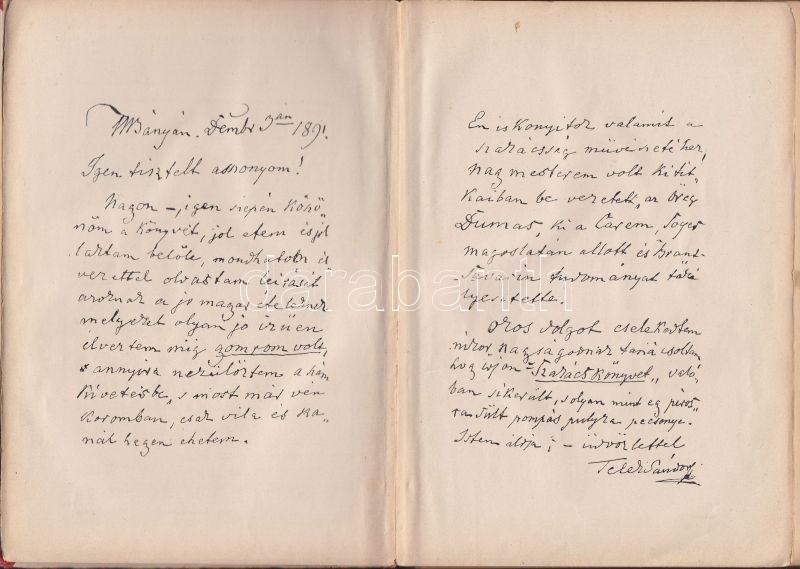 NBányán. Dembr 3án 1891.
Igen tisztelt assonyom!
Nagon – igen siepén köszö-
nöm a könyvét, jol etem és jol
laktam belőle, mondhatok é
vezettel olvastam leirását
azoknak a jo magar éteteknek
melyeket olyan jo izüen
élveztem mig gomrom volt,
s annyira nezülöztem a hám
kivetésbe, s most már vén
koromban, csak vila és ka-
nál hegen ehetem.
En is konyitok valamit a
szakácsság müvészetéhez,
nag mesterem volt kitit-
kaiban be vezetett, az Öreg
Dumas, ki a Carem, Soyer
magoslatán allott és Brant-
Savarin tudomanyat töké
lyesitette.
Okos dolgot cselekedtem
mikor nagságodnak taná csoltam
hog irjon "Szakács könyvet" való-
ban sikerült, solyan mint eg piros-
ra sült pompás pulyka pecsonye.
Isten áldja; – üdvözlettel
Teleki Sándor
darabanth